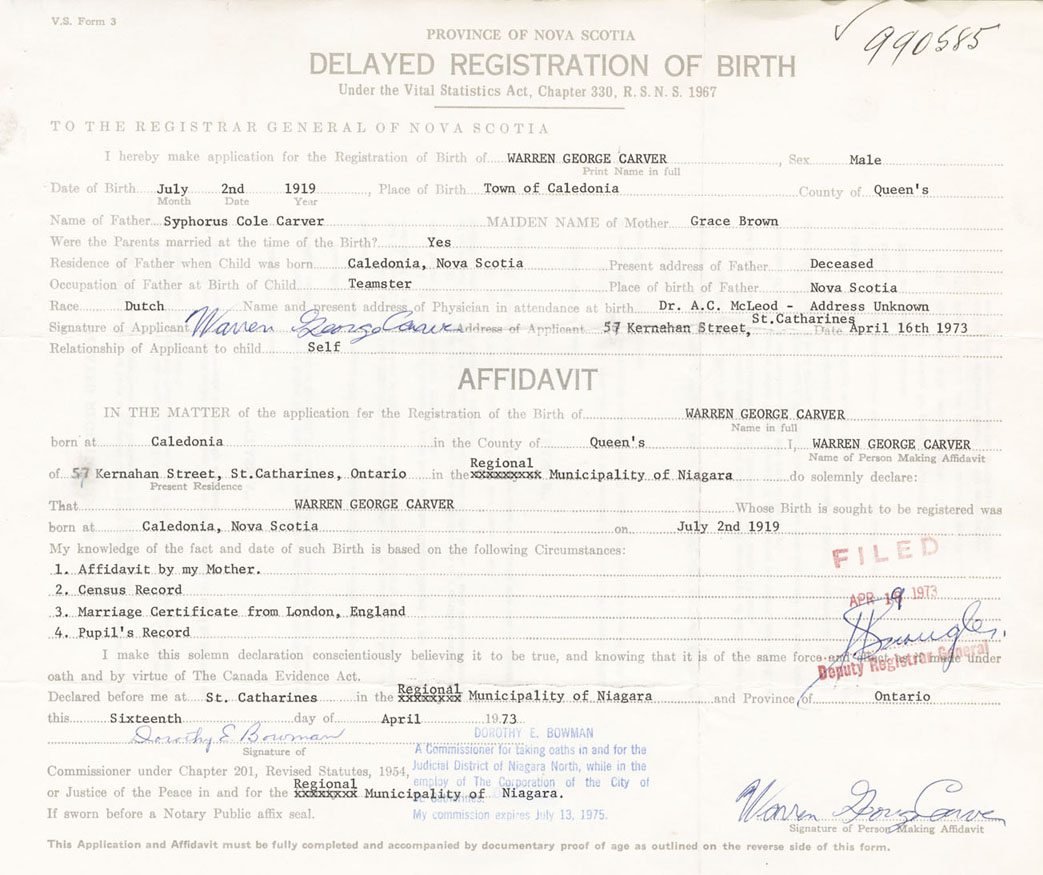 V.S. Form 3
990585
PROVINCE OF NOVA SCOTIA
DELAYED REGISTRATION OF BIRTH
Under the Vital Statistics Act, Chapter 330, R.S.N.S. 1967
TO THE REGISTRAR GENERAL OF NOVA SCOTIA
I hereby make application for the Registration of Birth of WARREN GEORGE CARVER, Sex Male
Print Name in full
Date of Birth July 2nd 1919, Place of Birth Town of Caledonia County of Queen's
Month Date Year
Name of Father Syphorus Cole Carver MAIDEN NAME of Mother Grace Brown
Were the Parents married at the time of the Birth? Yes
Residence of Father when Child was born Caledonia, Nova Scotia Present address of Father Deceased
Occupation of Father at Birth of Child Teamster Place of birth of Father Nova Scotia
Race Dutch Name and present address of Physician in attendance at birth Dr. A.C. McLeod - Address Unknown
Signature of Applicant Warren George Carver Address of Applicant 57 Kernahan Street, St.Catharines Date April 16th 1973
Relationship of Applicant to child Self
AFFIDAVIT
IN THE MATTER of the application for the Registration of the Birth of WARREN GEORGE CARVER
Name in full
born at Caledonia in the County of Queen's I, WARREN GEORGE CARVER
Name of Person Making Affidavit
of 57 Kernahan Street, St.Catharines, Ontario in the xxxxxxxxx Regional Municipality of Niagara do solemnly declare:
Present Residence
That WARREN GEORGE CARVER Whose Birth is sought to be registered was
born at Caledonia, Nova Scotia on July 2nd 1919
My knowledge of the fact and date of such Birth is based on the following Circumstances:
1. Affidavit by my Mother.
2. Census Record
3. Marriage Certificate from London, England
4. Pupil's Record
FILED
APR 19 1973
Deputy Registrar General
I make this solemn declaration conscientiously believing it to be true, and knowing that it is of the same force and effect as if made under
oath and by virtue of The Canada Evidence Act.
Declared before me at St. Catharines in the xxxxxxxx Regional Municipality of Niagara and Province of Ontario
this Sixteenth day of April 1973
Dorothy E Bowman
Signature of
Commissioner under Chapter 201, Revised Statutes, 1954,
or Justice of the Peace in and for the xxxxxxxx Regional Municipality of Niagara.
If sworn before a Notary Public affix seal.
DOROTHY E. BOWMAN
A Commissioner for taking oaths in and for the
Judicial District of Niagara North, while in the
employ of The Corporation of the City of
St. Catharines.
My commission expires July 13, 1975.
Warren George Carver
Signature of Person Making Affidavit
This Application and Affidavit must be fully completed and accompanied by documentary proof of age as outlined on the reverse side of this form.